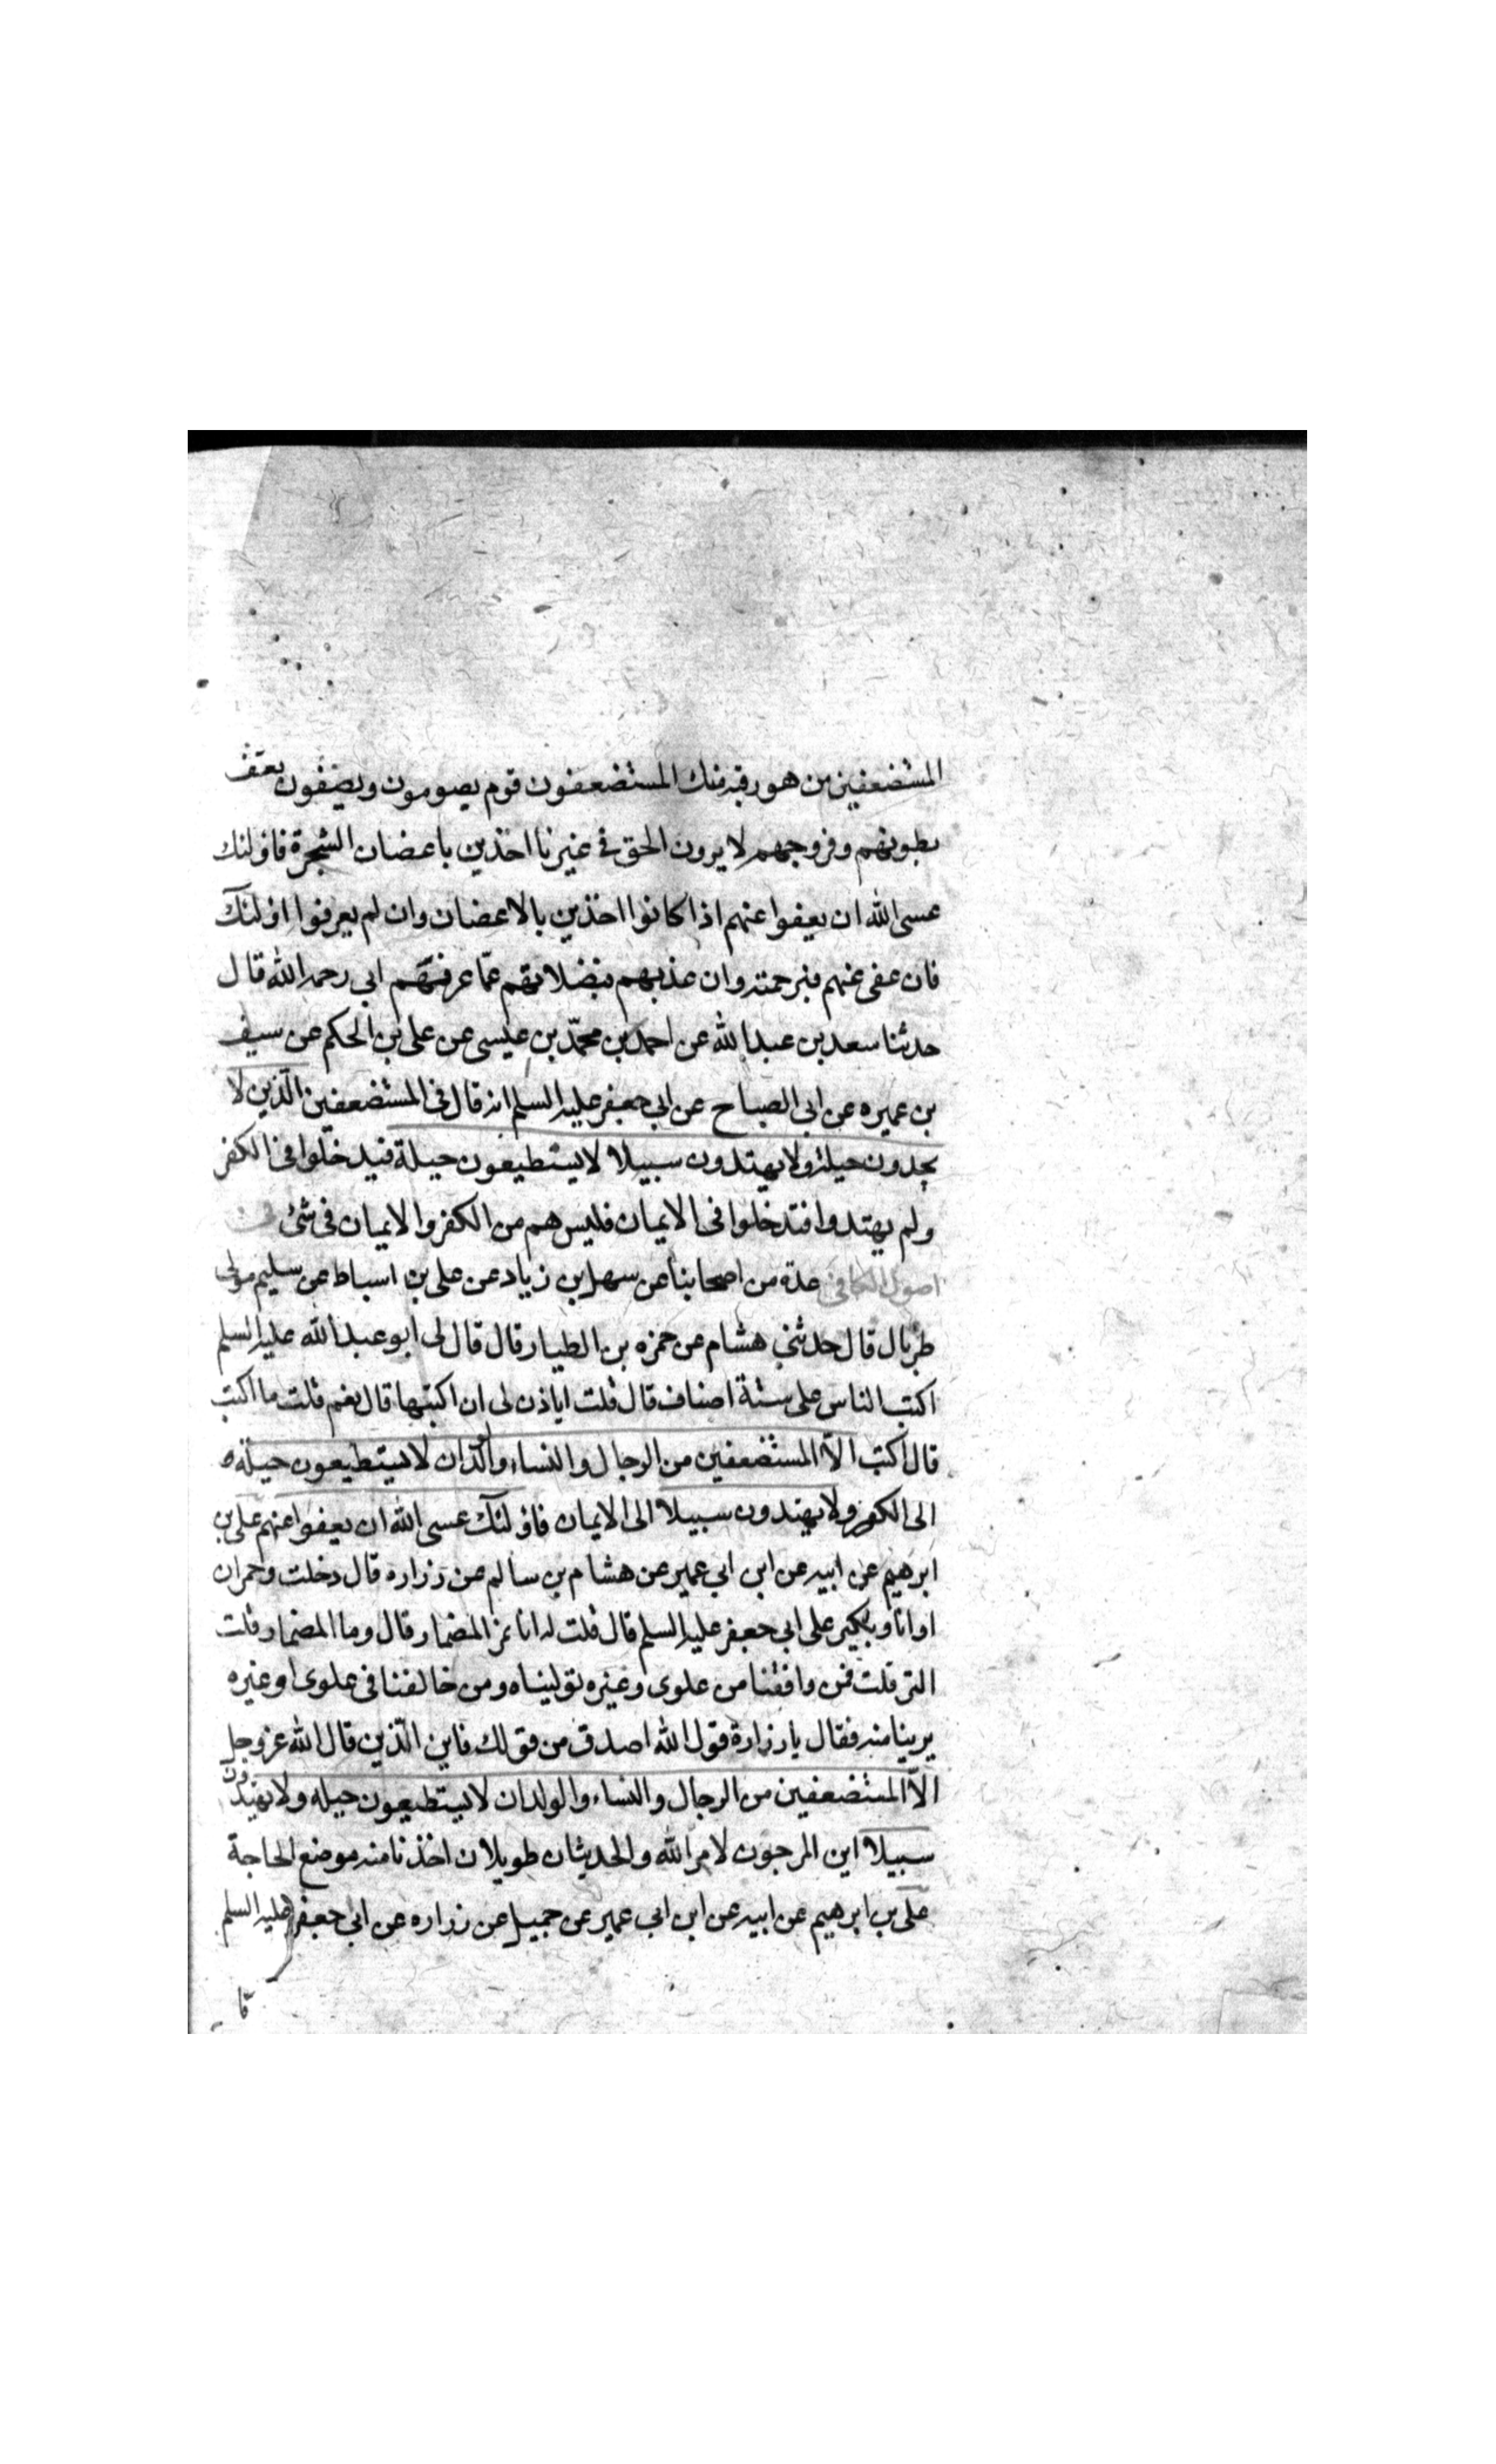 المستضعفين من هو رقبة منك المستضعفون قوم يصومون ويصفون بعفف
بطونهم وفروجهم لا يرون الحق في غيرنا اخذين باعضان الشجرة فاولئك
عسى الله ان يعفوا عنهم اذا كانوا اخذين بالاعضان وان لم يعرفوا اولئك
فان عفى عنهم فبرحمته وان عذبهم فبضلالتهم عما عرفهم ابي رحمه الله قال
حدثنا سعد بن عبد الله عن احمد بن محمّد بن عيسى عن على بن الحكم عن سيف
بن عميره عن ابى الصباح عن ابي جعفر عليه السلم انه قال فى المستضعفين الّذين لا
يجدون حيلة ولا يهتدون سبيلا لا يستطيعون حيلة فيدخلوا فى الكفر
ولم يهتدوا فيدخلوا فى الايمان فليس هم من الكفر والايمان فى شئ
اصول الكافى عدة من اصحابنا عن سهل بن زياد عن على بن اسباط عن سليم مولى
طربال قال حدثني هشام عن حمزه بن الطيار قال قال لى ابو عبد الله عليه السلم
اكتب الناس على ستة اصناف قال قلت اياذن لى ان اكتبها قال نعم قلت ما اكتب
قال اكتب الاّ المستضعفين من الرجال والنساء والدان لا يستطيعون حيلة
الى الكفر ولا يهتدون سبيلا الى الايمان فاولئك عسى الله ان يعفوا عنهم على بن
ابرهيم عن ابيه عن ابن ابي عمير عن هشام بن سالم عن زراره قال دخلت وحمران
او انا وبكير على ابي جعفر عليه السلم قال قلت له انا نمز المضمار قال وما المضمار قلت
التر قلت فمن وافقنا من علوى وغيره توليناه ومن خالفنا فى علوى او غيره
برينا منه فقال يا زرارة قول الله اصدق من قولك فاين الّذين قال الله عز وجل
الاّ المستضعفين من الرجال والنساء والولدان لا يستطيعون حيله ولا يهتدون
سبيلا اين المرجون لامر الله والحديثان طويلان اخذنا منه موضع الحاجة
على بن ابرهيم عن ابيه عن ابن ابي عمير عن جميل عن زراره عن ابى جعفر عليه السلم
قا